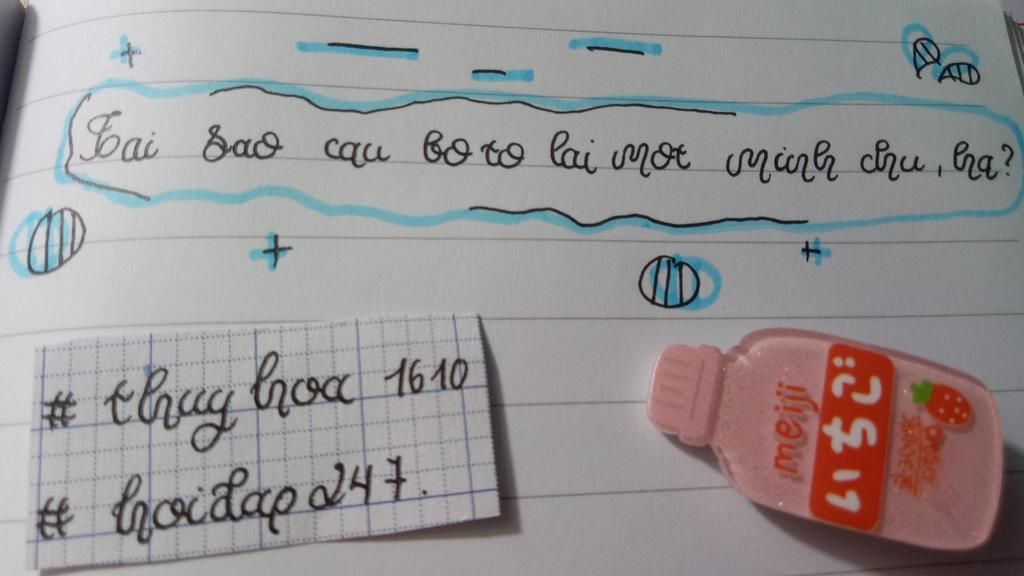 Tai sao cau bo to lai mot minh chu, ha?
# thuy hoa 1610
# hoidap 247.
meiji
いちご